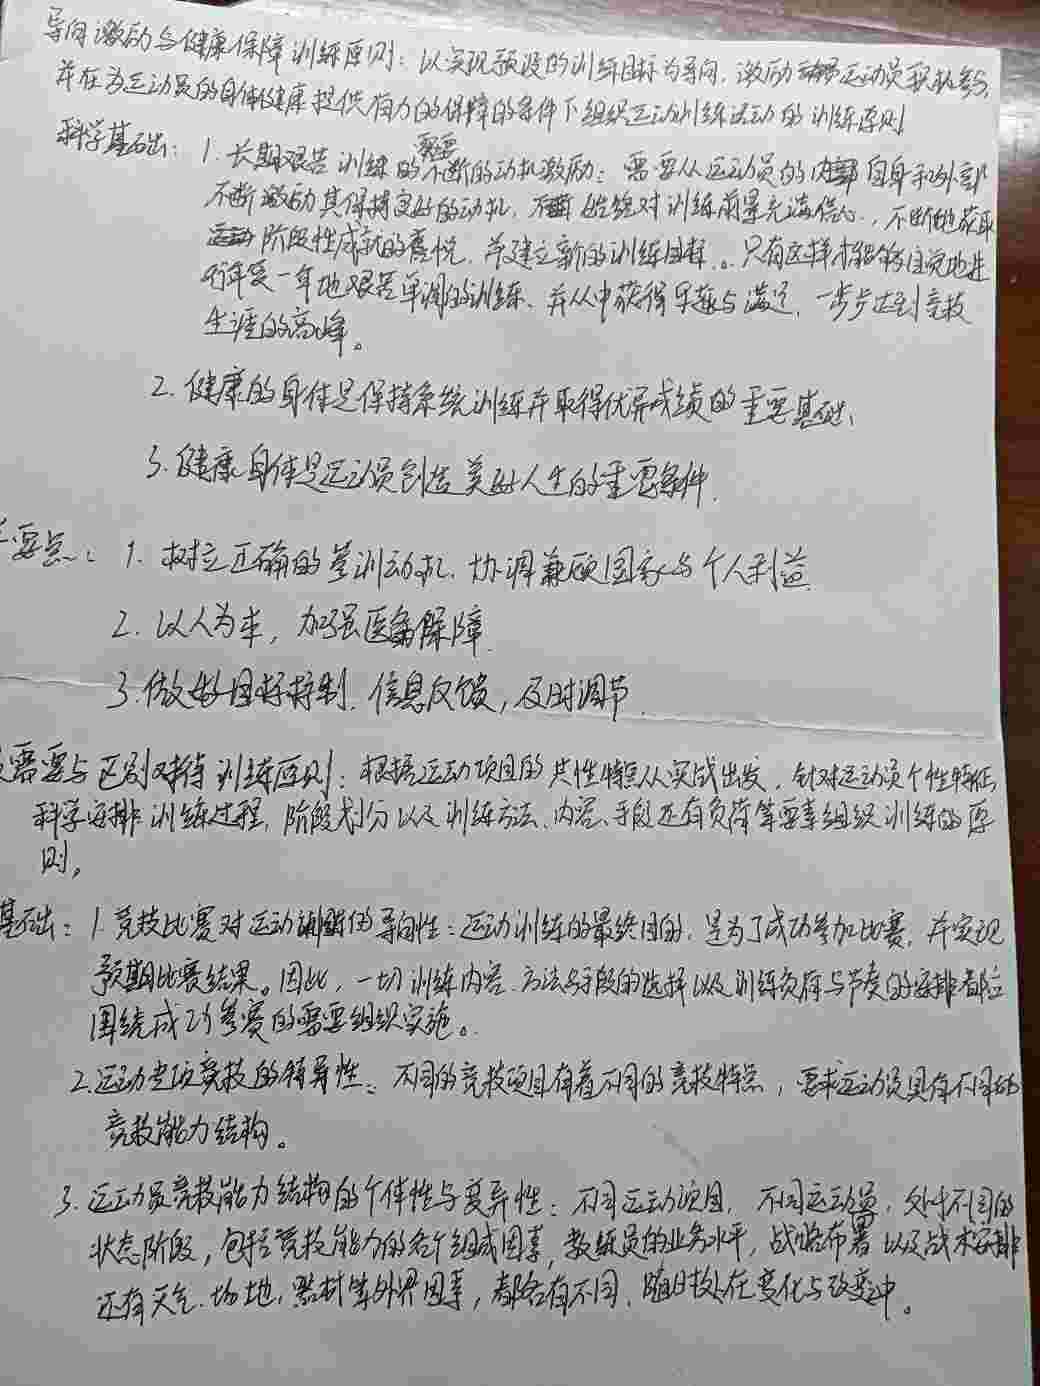 导向激励与健康保障训练原则：以实现预设的训练目标为导向，激励运动员积极参与，
并在为运动员的身体健康提供有力的保障的条件下组织运动训练活动的训练原则
科学基础：1.长期艰苦训练的需要不断的动机激励：需要从运动员的内部自身和外部
不断激励其保持良好的动机，始终对训练前景充满信心，不断地获取
阶段性成就的喜悦，并建立新的训练目标。只有这样才能够自觉地进
行年复一年地艰苦单调的训练、并从中获得乐趣与满足，一步步达到竞技
生涯的高峰。
2.健康的身体是保持系统训练并取得优异成绩的重要基础、
3.健康身体是运动员创造美好人生的重要条件.
要点：1.树立正确的参训动机，协调兼顾国家与个人利益
2.以人为本，加强医务保障
3.做好目标控制.信息反馈，及时调节
需要与区别对待训练原则：根据运动项目的共性特点从实战出发，针对运动员个性特征
科学安排训练过程，阶段划分以及训练方法、内容、手段还有负荷等要素组织训练的原
则。
基础：1.竞技比赛对运动训练的导向性：运动训练的最终目的，是为了成功参加比赛，并实现
预期比赛结果。因此，一切训练内容、方法与手段的选择以及训练负荷与节奏的安排都应
围绕成功参赛的需要组织实施。
2.运动专项竞技的特异性：不同的竞技项目有着不同的竞技特点，要求运动员具有不同的
竞技能力结构。
3.运动员竞技能力结构的个体性与变异性：不同运动项目，不同运动员，处于不同的
状态阶段，包括竞技能力的各个组成因素，教练员的业务水平，战略布署以及战术安排
还有天气、场地，器材等外界因素，都各有不同，随时处在变化与改变中。